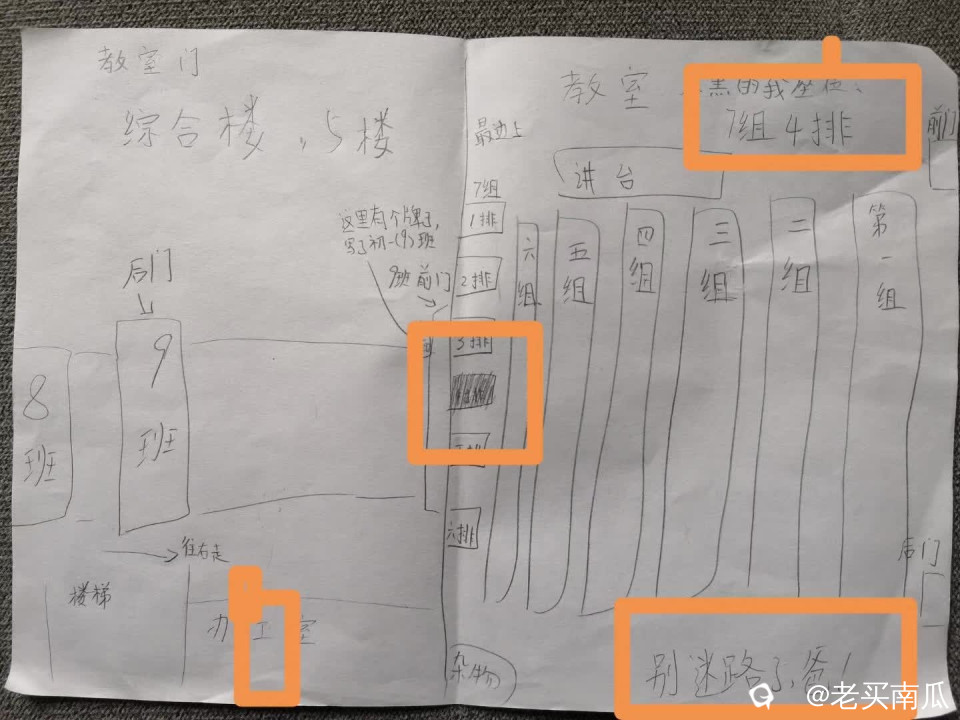 教室门
综合楼，5楼
后门
8班
9班
往右走
楼梯
办工室
这里有个牌子，
写了初一(9)班
9班前门
教室
黑的我座位、
7组4排
前门
最边上
讲台
7组
1排
2排
3排
六排
六组
五组
四组
三组
二组
第一组
后门
杂物
别迷路了，爸！
@老买南瓜